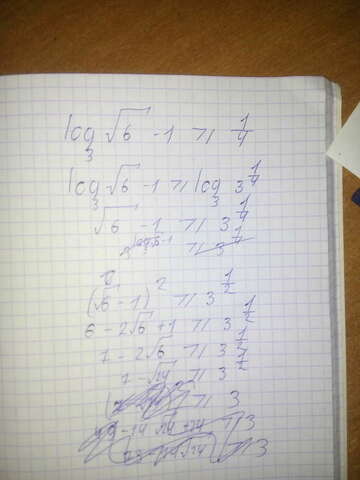 log₃ √6 - 1 > 1/4
log₃ √6 - 1 > log₃ 3^(1/4)
√6 - 1 > 3^(1/4)
> 3^(1/4)
(√6 - 1)² > 3^(1/2)
6 - 2√6 + 1 > 3^(1/2)
7 - 2√6 > 3^(1/2)
7 - √24 > 3^(1/2)
> 3
> 3
> 3